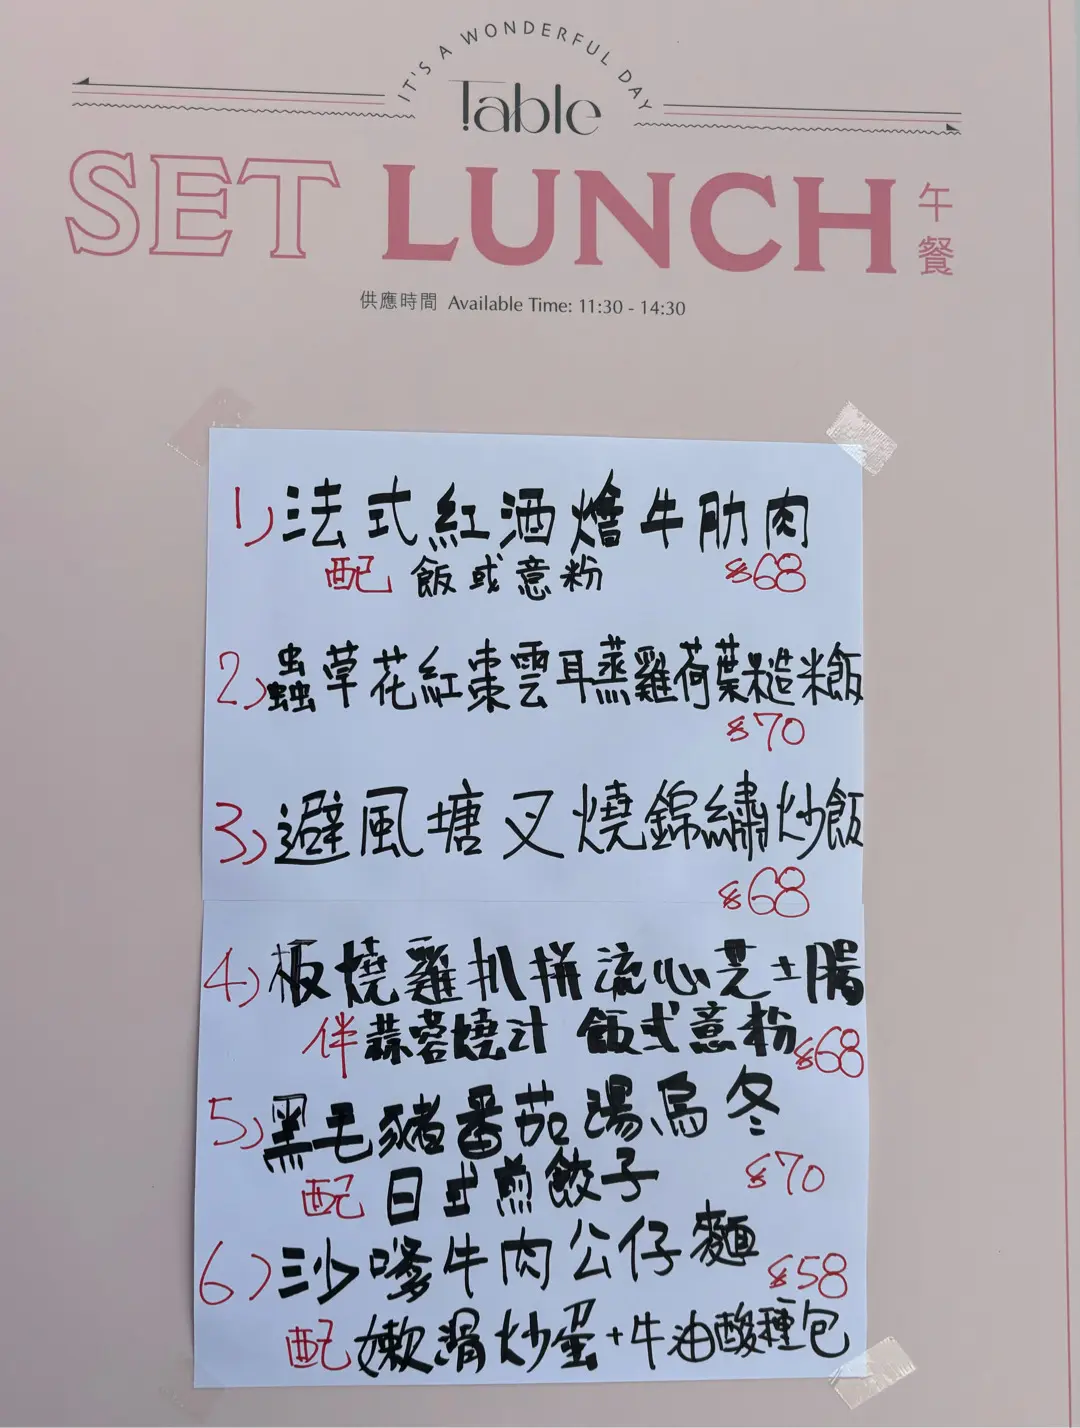 IT'S A WONDERFUL DAY
Table
SET LUNCH 午餐
供應時間 Available Time: 11:30 - 14:30
1) 法式紅酒燴牛肋肉
配 飯或意粉 $68
2) 蟲草花紅棗雲耳蒸雞荷葉糙米飯
$70
3) 避風塘叉燒錦繡炒飯
$68
4) 板燒雞扒拼流心芝士腸
伴蒜蓉燒汁 飯或意粉 $68
5) 黑毛豬番茄湯烏冬
配 日式煎餃子 $70
6) 沙嗲牛肉公仔麵 $58
配 嫩滑炒蛋+牛油酸種包